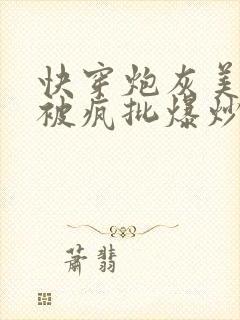 快穿炮灰美
被疯批爆炒
萧翡